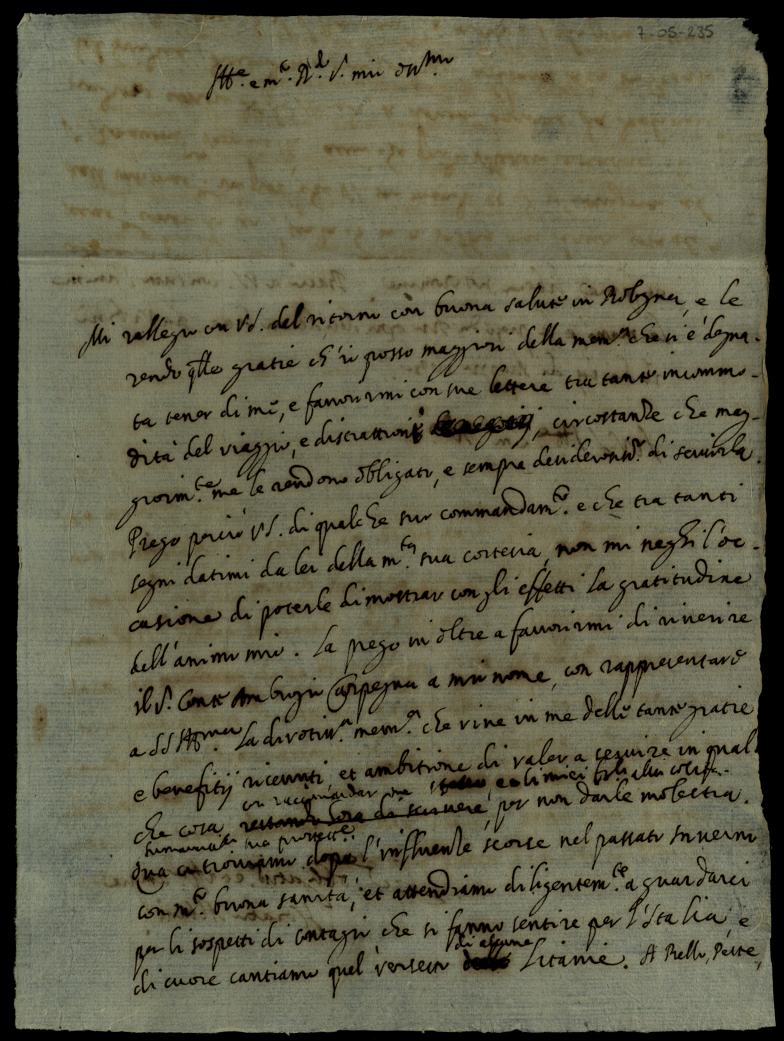 7-05-235
Ill.re e m.to R.do S.r mio oss.mo
Mi rallegro con VS. del ritorno con buona salute in Bologna, e le
rendo q̃lle gratie ch'io posso maggiori della mem.a che si è degna-
ta tener di me, e favorirmi con sue lettere tra tante incommo-
dità del viaggio, e distrattioni, circostanze che mag-
giorm.te me le rendono obligato, e sempre desideros.mo di servirla.
Prego perciò VS. di qualche suo commandam.to e che tra tanti
segni datimi da lei della m.ta sua cortesia, non mi neghi l'oc-
casione di poterle dimostrar con gli effetti la gratitudine
dell'animo mio. La prego in oltre a favorirmi di riverire
il S. Conte Ambrogio Carpegna a mio nome, con rappresentare
a SS Ill.ma La divotiss.a mem.a che vive in me delle tante gratie
e benefitij ricevuti, et ambitione di valer a servire in qual
che cosa, con raccomandar me e li miei alla
restando hora di scrivere, per non darle molestia.
sua protett.e
Qua ci troviamo dopo l'influenze scorse nel passato Inverno
con m.ta buona sanità, et attendiamo diligentem.te a guardarci
per li sospetti di contagio che si fanno sentire per l'Italia, e
di cuore cantiamo quel versetto di alcune Litanie. A Bello, Peste,